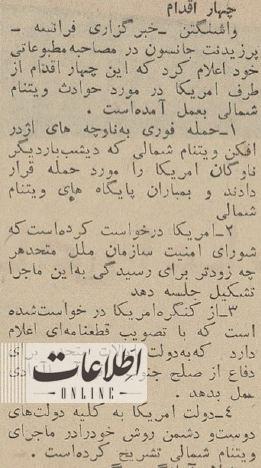 چهار اقدام
واشنگتن - خبرگزاری فرانسه -
پرزیدنت جانسون در مصاحبه مطبوعاتی
خود اعلام کرد که این چهار اقدام از
طرف امریکا در مورد حوادث ویتنام
شمالی بعمل آمده‌است .
۱-حمله فوری به‌ناوچه های اژدر
افکن ویتنام شمالی که دیشب‌باردیگر
ناوگان امریکا را مورد حمله قرار
دادند و بمباران پایگاه های ویتنام
شمالی
۲-امریکا درخواست کرده‌است‌که
شورای امنیت سازمان ملل متحدهر
چه زودتر برای رسیدگی به‌این ماجرا
تشکیل جلسه دهد
۳-از کنگره‌امریکا در خواست‌شده
است که با تصویب قطعنامه‌ای اعلام
دارد که‌به‌دولت
دفاع از صلح
عمل بدهد .
اطلاعات
ONLINE
۴-دولت امریکا به کلیه دولت‌های
دوست‌و دشمن روش خودرادر ماجرای
ویتنام شمالی تشریح کرده‌است .